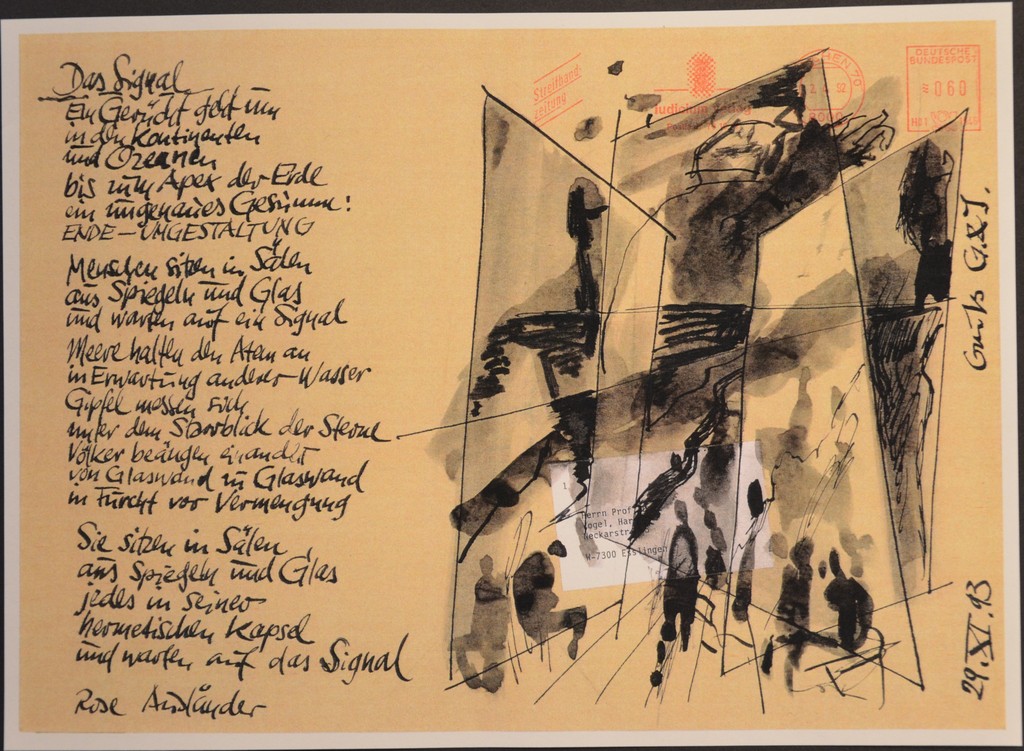 Das Signal
Ein Gerücht geht um
in den Kontinenten
und Ozeanen
bis zum Apex der Erde
ein ungenaues Gesumme:
ENDE – UMGESTALTUNG
Menschen sitzen in Sälen
aus Spiegeln und Glas
und warten auf ein Signal
Meere halten den Atem an
in Erwartung anderer Wasser
Gipfel messen sich
unter dem Starrblick der Sterne
Völker beäugen einander
von Glaswand zu Glaswand
in Furcht vor Vermengung
Sie sitzen in Sälen
aus Spiegeln und Glas
jedes in seiner
hermetischen Kapsel
und warten auf das Signal
Rose Ausländer
Streifband-
zeitung
iudicium
DEUTSCHE
BUNDESPOST
060
Herrn Prof
Vogel, Har
Neckarstr
W-7300 Esslingen
29.XI.93